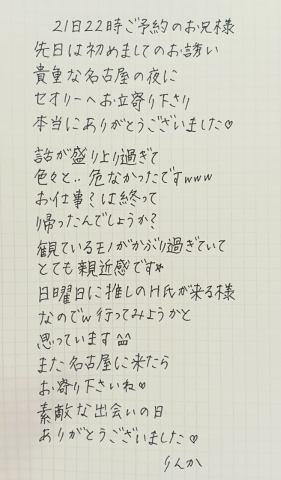 21日22時ご予約のお兄様
先日は初めましてのお誘い
貴重な名古屋の夜に
セオリーへお立寄り下さり
本当にありがとうございました♡
話が盛り上り過ぎて
色々と‥危なかったですwww
お仕事?は終って
帰ったんでしょうか?
観ているモノがかぶり過ぎていて
とても親近感です★
日曜日に推しのH氏が来る様
なのでw行ってみようかと
思っています^^
また名古屋に来たら
お寄り下さいね♥
素敵な出会いの日
ありがとうございました♡
りんか